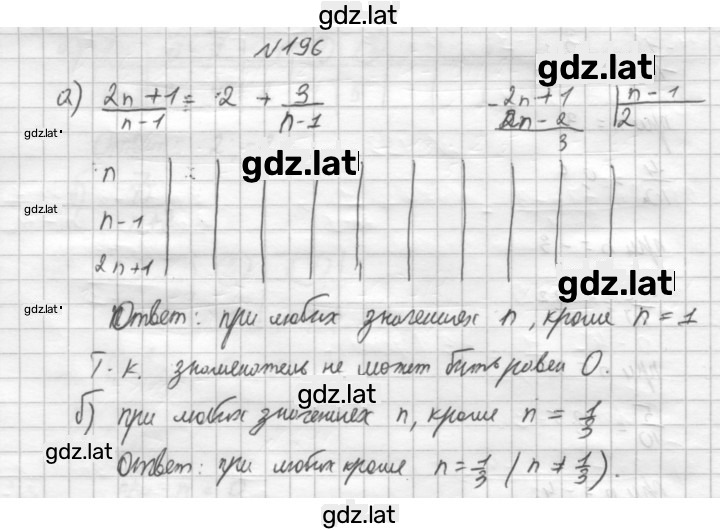 gdz.lat
N196
gdz.lat
а) (2n+1)/(n-1) = 2 + 3/(n-1)
2n+1 | n-1
- 2n-2 | 2
3
gdz.lat
gdz.lat
n
gdz.lat
n-1
2n+1
gdz.lat
gdz.lat
Ответ: при любых значениях n, кроме n = 1
Т.к. знаменатель не может быть равен 0.
gdz.lat
б) при любых значениях n, кроме n = 1/3
gdz.lat
Ответ: при любых кроме n = 1/3 (n ≠ 1/3).
gdz.lat